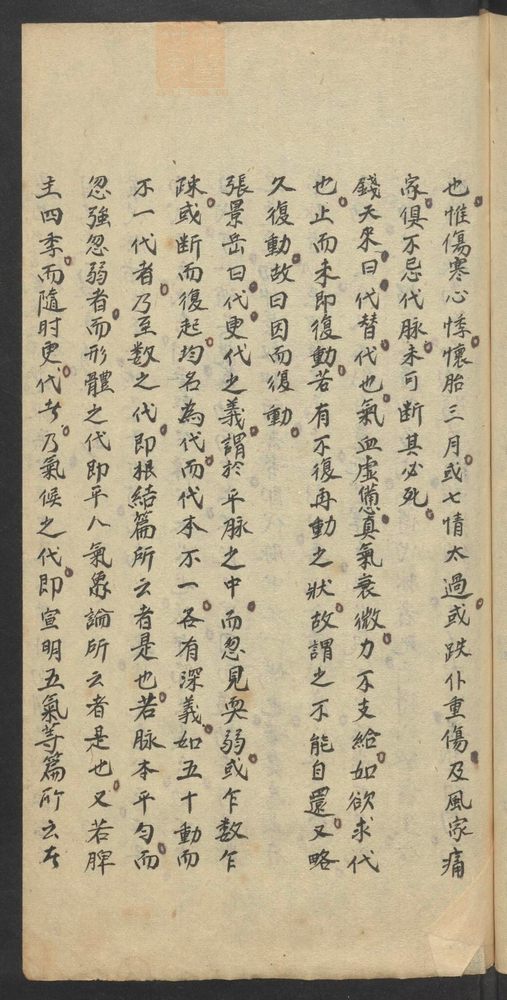 也惟傷寒心悸懷胎三月或七情太過或跌仆重傷及風家痛
家俱不忌代脉未可断其必死
錢天來曰代替代也氣血虛憊真氣衰微力不支給如欲求代
也止而未即復動若有不復再動之狀故謂之不能自還又略
久復動故曰因而復動
張景岳曰代更代之義謂於平脉之中而忽見耎弱或乍數乍
踈或断而復起均名為代而代本不一各有深義如五十動而
不一代者乃至数之代即根結篇所云者是也若脉本平匀而
忽強忽弱者而形體之代即平人氣象論所云者是也又若脾
主四季而隨时更代者乃氣候之代即宣明五氣等篇所云者